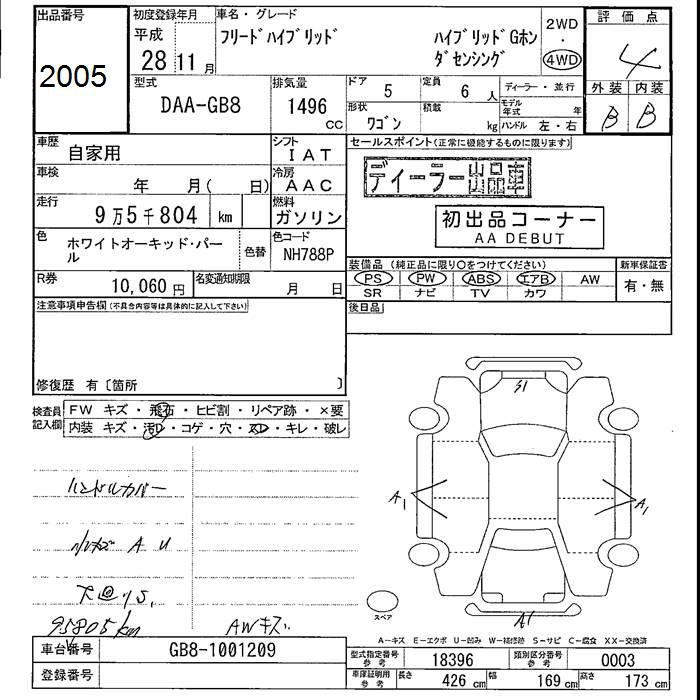 出品番号
2005
初度登録年月
平成
28 11 月
車名・グレード
フリードハイブリッド ハイブリッドGホン
ダセンシング
2WD
・
4WD
評価点
4
外装 内装
B B
型式
DAA-GB8
排気量
1496
CC
ドア
5
定員
6 人
形状
ワゴン
積載
kg
ディーラー・並行
モデル
年式 年
ハンドル 左・右
車歴
自家用
シフト
IAT
車検
年 月( 日)
冷房
AAC
走行
9万5千804 km
燃料
ガソリン
色
ホワイトオーキッド・パー
ル
色替
色コード
NH788P
R券
10,060 円
名変通知期限
月 日
セールスポイント(正常に機能するものに限ります)
ディーラー出品車
初出品コーナー
AA DEBUT
装備品 (純正品に限り○をつけてください)
PS PW ABS エアB AW
SR ナビ TV カワ
新車保証書
有・無
後日品
注意事項申告欄(不具合内容等は具体的に記入して下さい)
修復歴 有〔箇所 〕
検査員
記入欄
FW キズ・飛石・ヒビ割・リペア跡・×要
内装 キズ・汚レ・コゲ・穴・スレ・キレ・破レ
ハンドルカバー
A U
95805km
AWキズ
S1
A1
A1
A1
スペア
A-キズ E-エクボ U-凹み W-補修跡 S-サビ C-腐食 XX-交換済
車台番号
GB8-1001209
登録番号
型式指定番号
参考
18396
類別区分番号
参考
0003
車庫証明用
参考
長さ
426 cm
幅
169 cm
高さ
173 cm